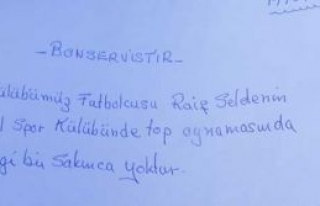 - BONSERVİSTİR -
ulübümüz Futbolcusu Raif Seldenin
Spor Külübünde top oynamasında
gi bir Sakınca yoktur.